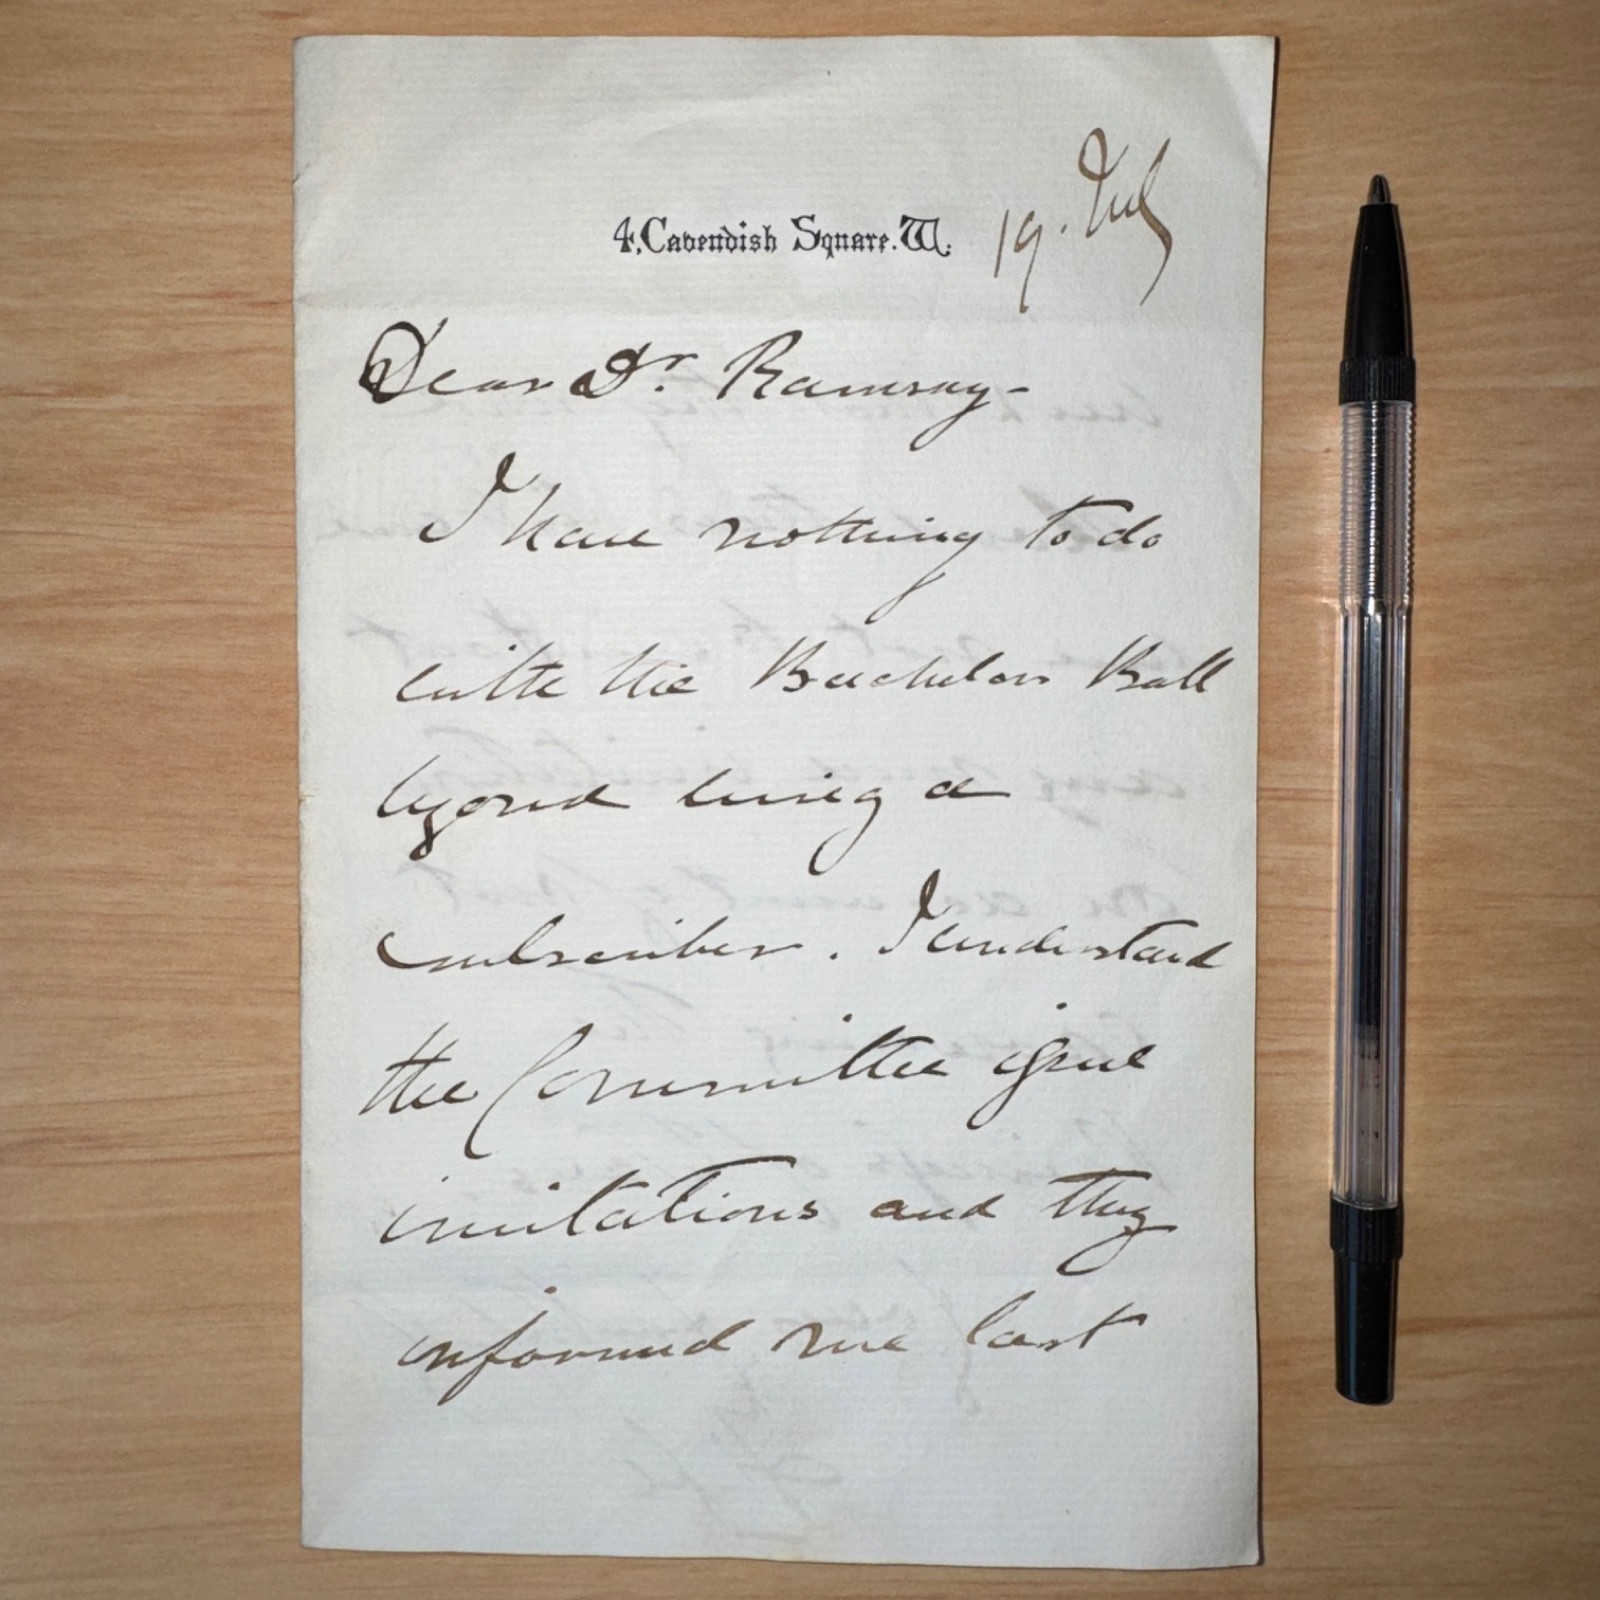 4, Cavendish Square. W. 19. Jul
Dear Dr. Ramsay-
I have nothing to do
with the Bachelors Ball
beyond being a
subscriber. I understand
the Committee issue
invitations and they
informed me last